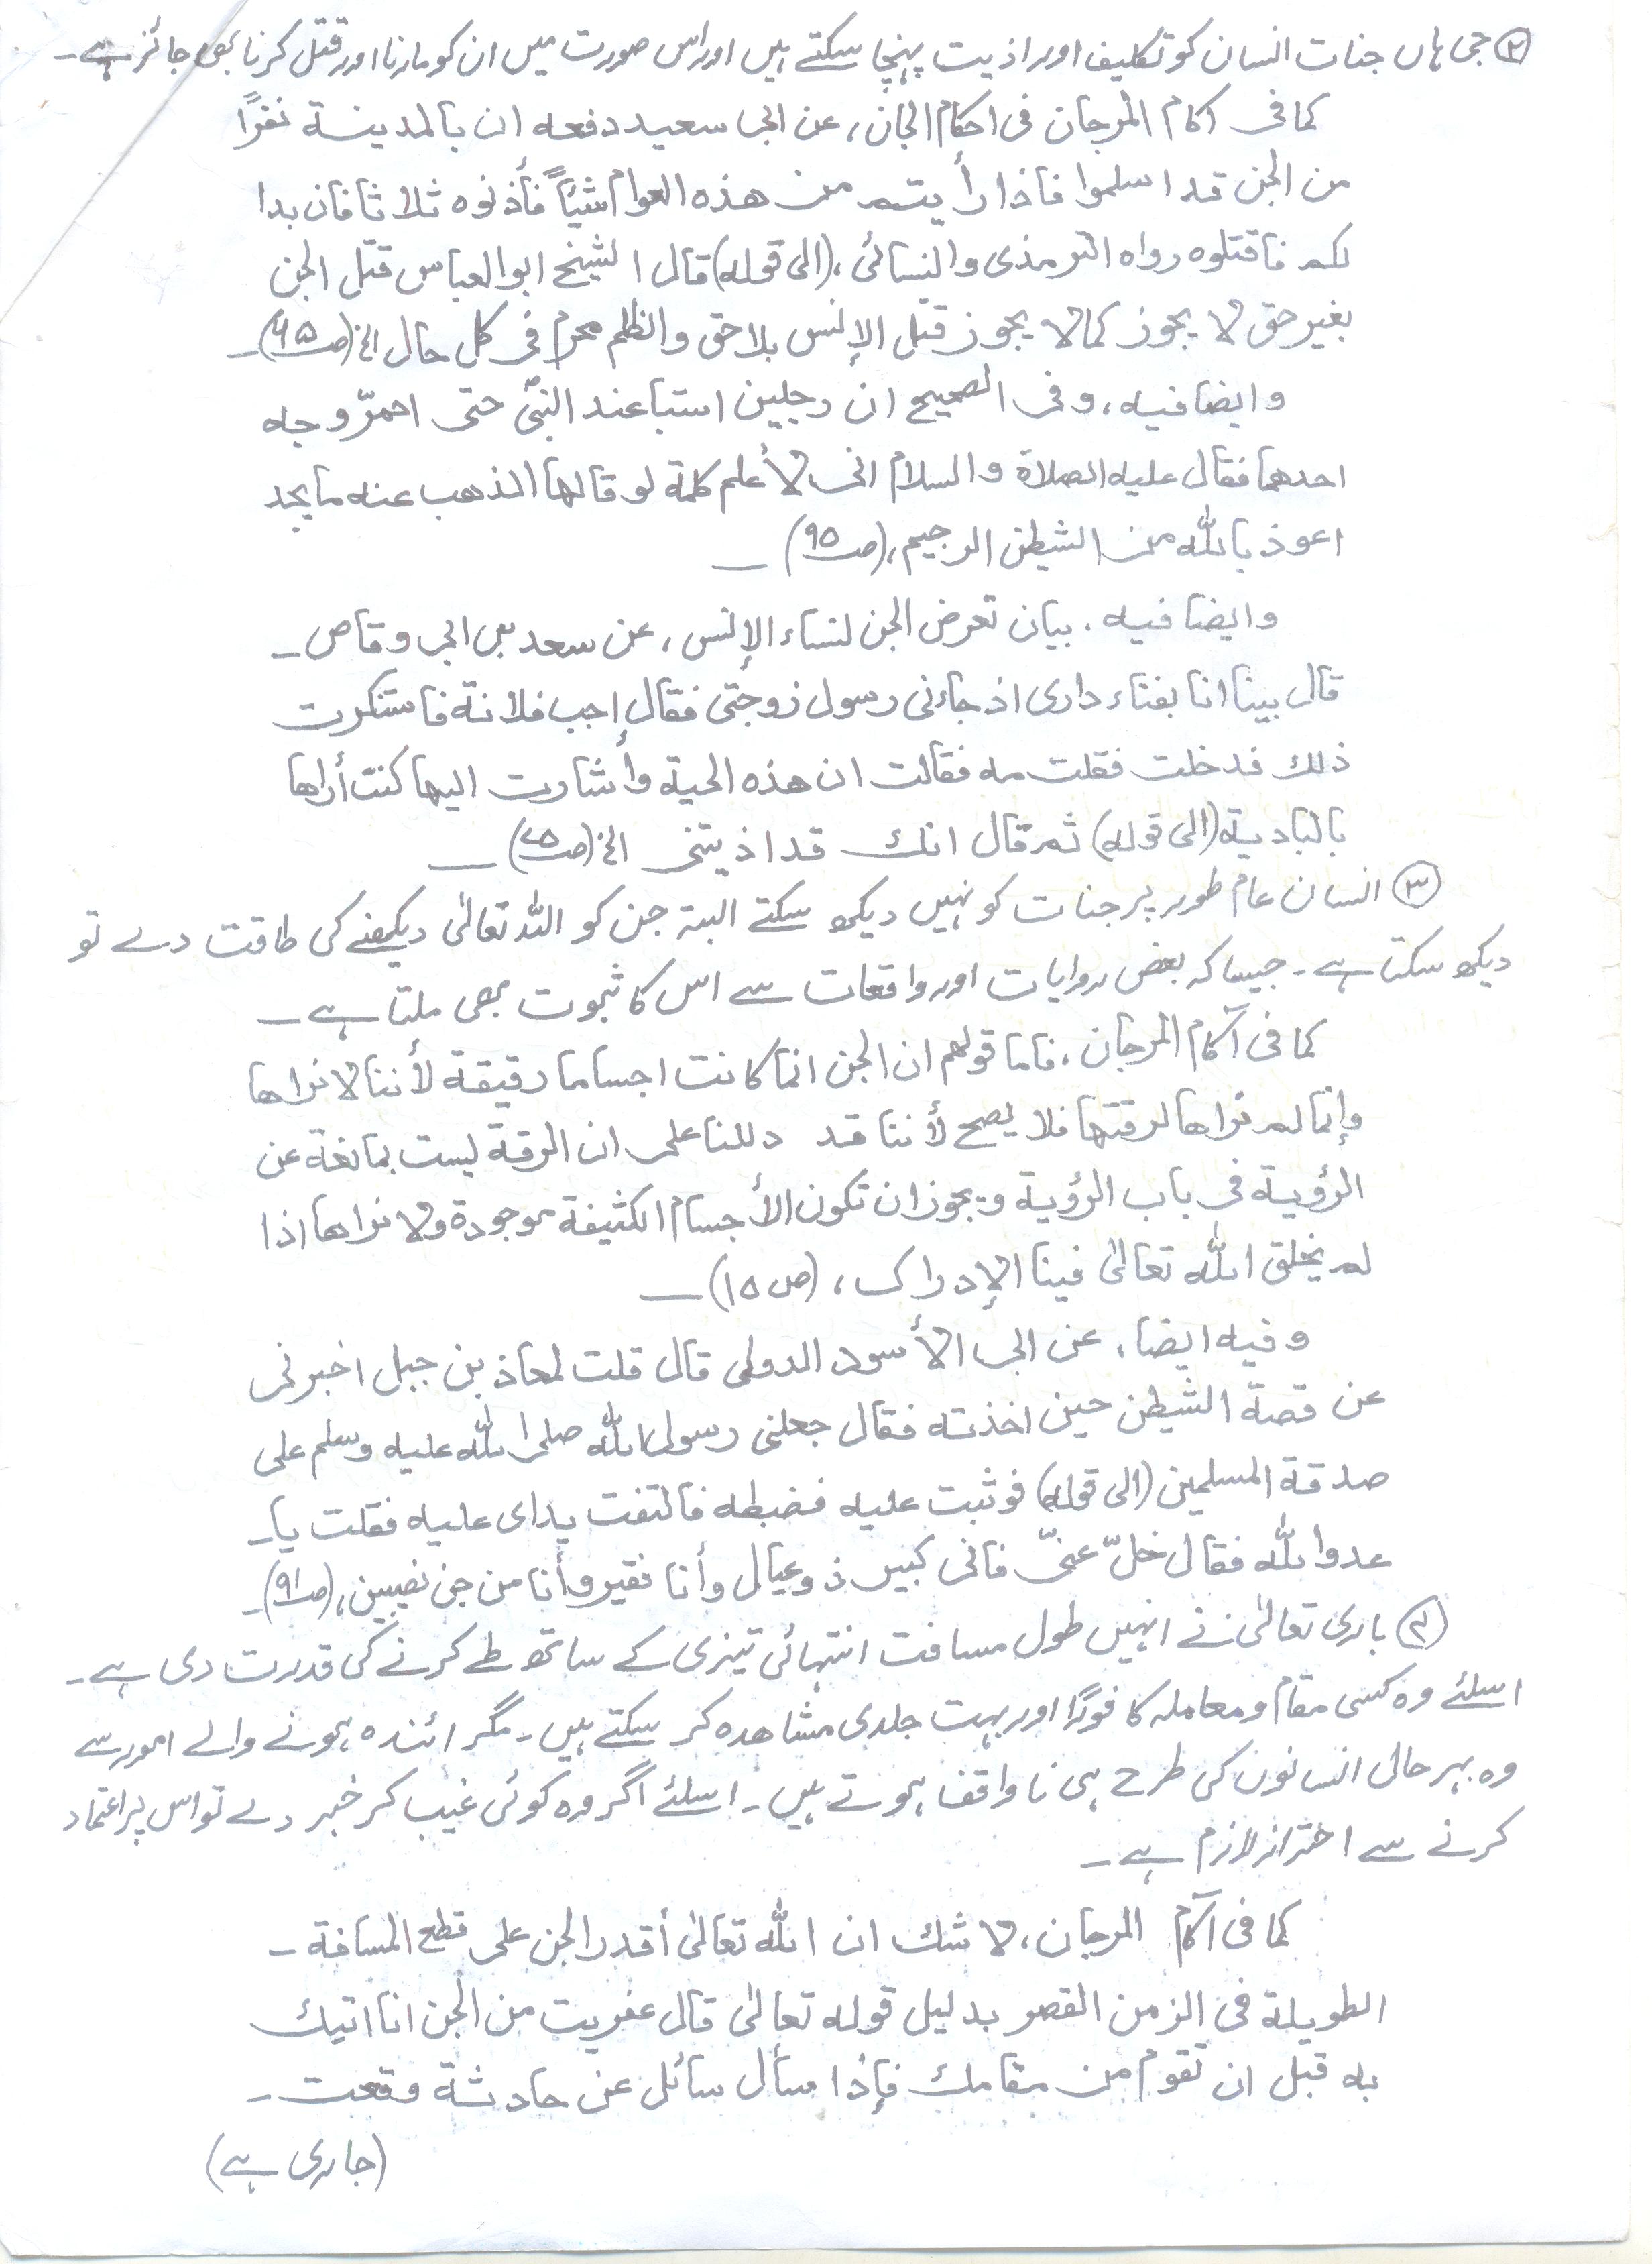 ② جی ہاں جنات انسان کو تکلیف اور اذیت پہنچا سکتے ہیں اور اس صورت میں ان کو مارنا اور قتل کرنا بھی جائز ہے۔
کما فی آکام المرجان فی احکام الجان، عن ابی سعید دفعه ان بالمدینة نفرًا
من الجن قد اسلموا فاذا رأیتم من هذه العوام شیئاً فأذنوه ثلاثا فان بدا
لکم فاقتلوه رواه الترمذی والنسائی، (الی قوله) قال الشیخ ابوالعباس قتل الجن
بغیر حق لا یجوز کما لا یجوز قتل الإنس بلا حق والظلم محرم فی کل حال الخ (صـ٦٥)۔
وایضا فیه، وفی الصحیح ان رجلین استبا عند النبیؐ حتی احمرّ وجه
احدهما فقال علیه الصلاة والسلام انی لأعلم کلمة لو قالها لذهب عنه ما یجد
اعوذ باللہ من الشیطٰن الرجیم، (صـ٩٥) ۔
وایضا فیه، بیان تعرض الجن لنساء الإنس، عن سعد بن ابی وقاص۔
قال بینا انا بفناء داری اذ جاءنی رسول زوجتی فقال إجب فلانة فاستنکرت
ذلك فدخلت فقلت مه فقالت ان هذه الحیة وأشارت الیها کنت أراها
بالبادیة (الی قوله) ثم قال انك قد اذیتنی الخ (صـ٧٥) ۔
③ انسان عام طور پر جنات کو نہیں دیکھ سکتے البتہ جن کو اللہ تعالیٰ دیکھنے کی طاقت دے تو
دیکھ سکتا ہے۔ جیسا کہ بعض روایات اور واقعات سے اس کا ثبوت بھی ملتا ہے۔
کما فی آکام المرجان، فاما قولهم ان الجن انما کانت اجساما رقیقة لأننا لا نراها
وإنما لم نراها لرقتها فلا یصح لأننا قد دللنا علی ان الرقة لیست بمانعة عن
الرؤیة فی باب الرؤیة ویجوز ان تکون الأجسام الکثیفة موجودة ولا نراها اذا
لم یخلق اللہ تعالیٰ فینا الإدراک، (ص١٥) ۔
وفیه ایضا، عن ابی الأسود الدولی قال قلت لمعاذ بن جبل اخبرنی
عن قصة الشیطٰن حین اخذته فقال جعلنی رسول اللہ صلی اللہ علیه وسلم علی
صدقة المسلمین (الی قوله) فوثبت علیه فضبطه فالتفت یدای علیه فقلت یا۔
عدو اللہ فقال خلّ عنّی فانی کبیر ذو عیال وأنا فقیر وأنا من جن نصیبین، (صـ٩١)۔
④ باری تعالیٰ نے انہیں طول مسافت انتہائی تیزی کے ساتھ طے کرنے کی قدرت دی ہے۔
اسلئے وہ کسی مقام و معاملہ کا فورًا اور بہت جلدی مشاھدہ کر سکتے ہیں۔ مگر ائندہ ہونے والے امور سے
وہ بہرحال انسانوں کی طرح ہی ناواقف ہوتے ہیں۔ اسلئے اگر وہ کوئی غیب کر خبر دے تو اس پر اعتماد
کرنے سے احتراز لازم ہے۔
کما فی آکام المرجان، لا شك ان اللہ تعالیٰ أقدر الجن علی قطع المسافة۔
الطویلة فی الزمن القصر بدلیل قوله تعالیٰ قال عفریت من الجن انا اتیك
به قبل ان تقوم من مقامك فإذا سأل سائل عن حادثة وقعت۔
(جاری ہے)